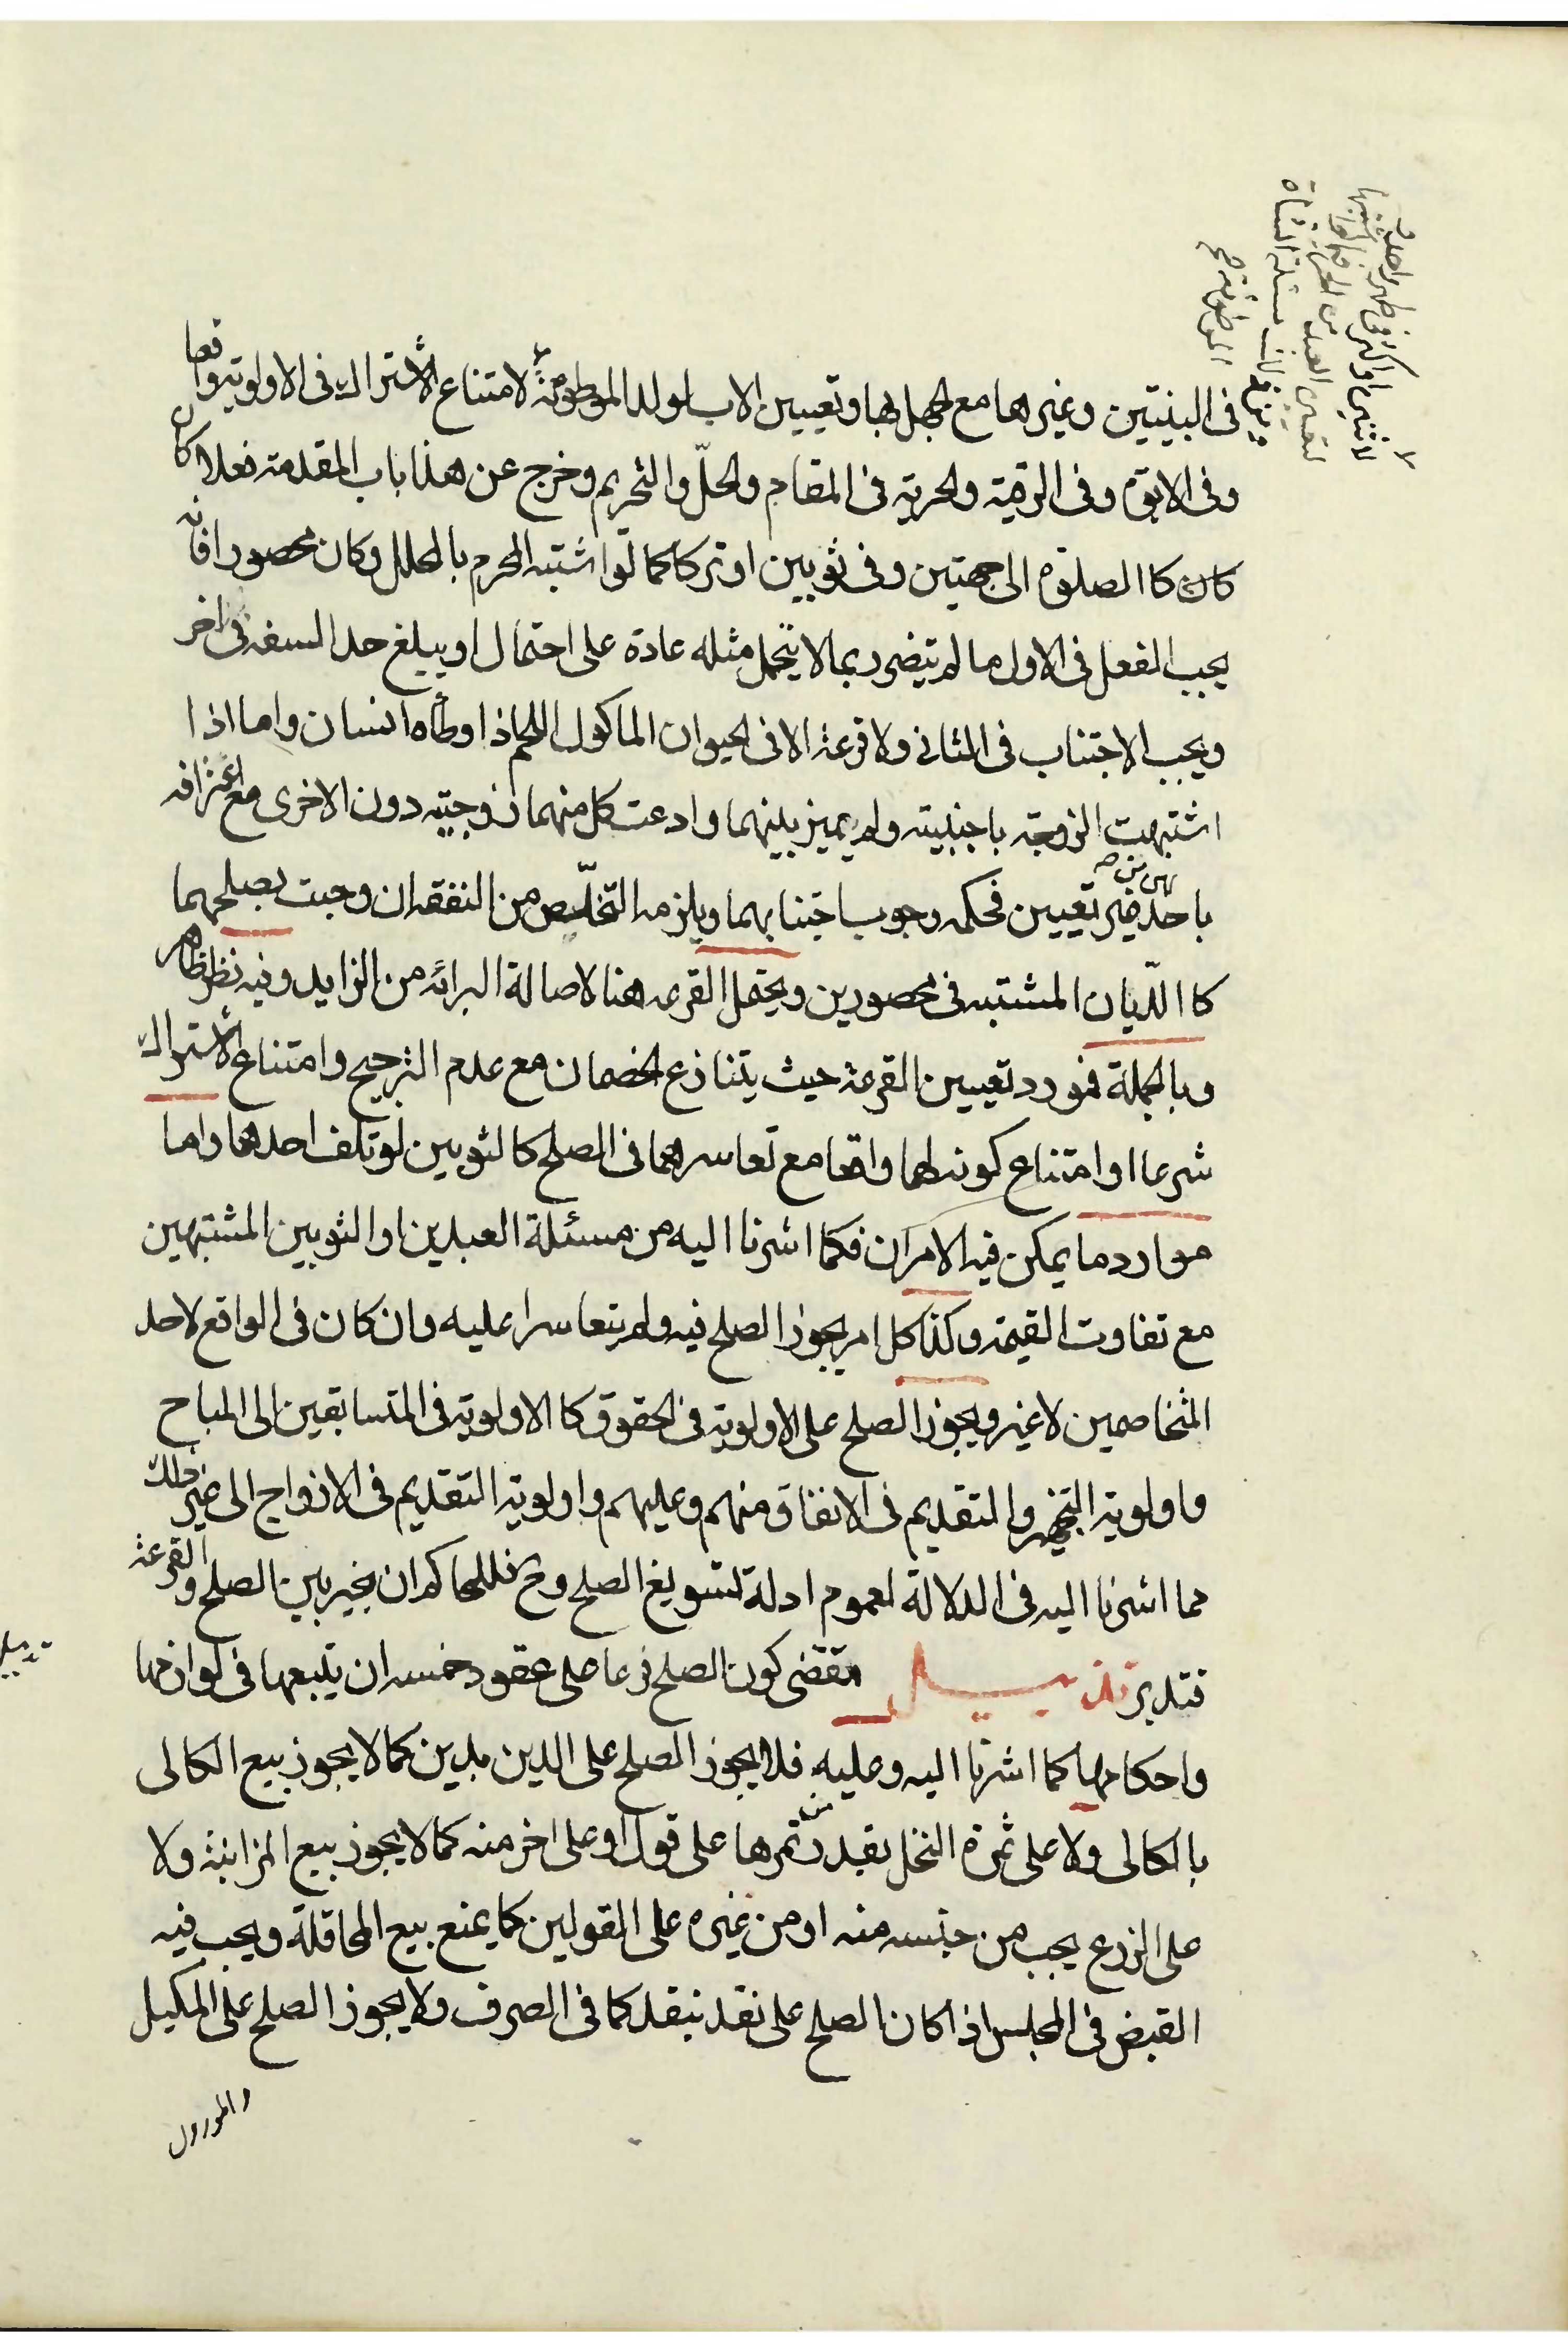 فى البنيتين وغيرها مع الجهل بها وتعيين الاب لولد الموطوئة لامتناع الاشتراك فى الاولوية واقعا
وفى الابوة وفى الرقية والحرية فى المقام والحلّ والتحريم وخرج عن هذا باب المقدمة فعلا كان
كان كا الصلوة الى جهتين وفى ثوبين او تركا كما لو اشتبه المحرم بالمحلل وكان محصورا فانه
يجب الفعل فى الاول ما لم يتضرر بما لا يتحمل مثله عادة على احتمال او يبلغ حد السفه فى اخر
ويجب الاجتناب فى الثانى ولا قرعة الا فى الحيوان الماكول اللحم اذا وطأه انسان واما اذا
اشتبهت الزوجة باجنبية ولم يميز بينهما وادعت كل منهما زوجيته دون الاخرى مع اعترافه
باحد من غير تعيين فحكمه وجوب اجتنابهما ويلزمه التخلّص من النفقه ان وجبت بصلحهما
كا الدّيان المشتبه فى محصورين ويحتمل القرعه هنا لاصالة البرائه من الزايد وفيه نظر ظاهر
وبالجملة فمورد تعيين القرعة حيث يتنازع الخصمان مع عدم الترجيح وامتناع الاشتراك
شرعا او امتناع كونه لهما واقعا مع تعاسرهما فى الصلح كالثوبين لو تلف احدهما واما
موارد ما يمكن فيه الامران فكما اشرنا اليه من مسئلة العبدين او الثوبين المشتبهين
مع تفاوت القيمة وكذا كل امر يجوز الصلح فيه ولم يتعاسرا عليه وان كان فى الواقع لاحد
المتخاصمين لا غير ويجوز الصلح على الاولوية فى الحقوق كا الاولوية فى المتسابقين الى المباح
واولوية التجهيز والتقديم فى الانفاق منهم وعليهم واولوية التقديم فى الازواج الى غير ذلك
مما اشرنا اليه فى الدلالة لعموم ادلة تسويغ الصلح وح فللحاكم ان يخير بين الصلح والقرعة
فتدبر تذييل مقتضى كون الصلح فرعا على عقود خمسه ان يتبعها فى لوازمها
واحكامها كما اشرنا اليه وعليه فلا يجوز الصلح على الدين بدين كما لا يجوز بيع الكالى
بالكالى ولا على ثمرة النخل بقدر من تمرها على قول او على اخر منه كما لا يجوز بيع المزابنة ولا
على الزرع بحب من جنسه منه او من غيره على القولين كما يمنع بيع المحاقلة ويجب فيه
القبض فى المجلس اذا كان الصلح على نقد بنقد كما فى الصرف ولا يجوز الصلح على المكيل
والموزون